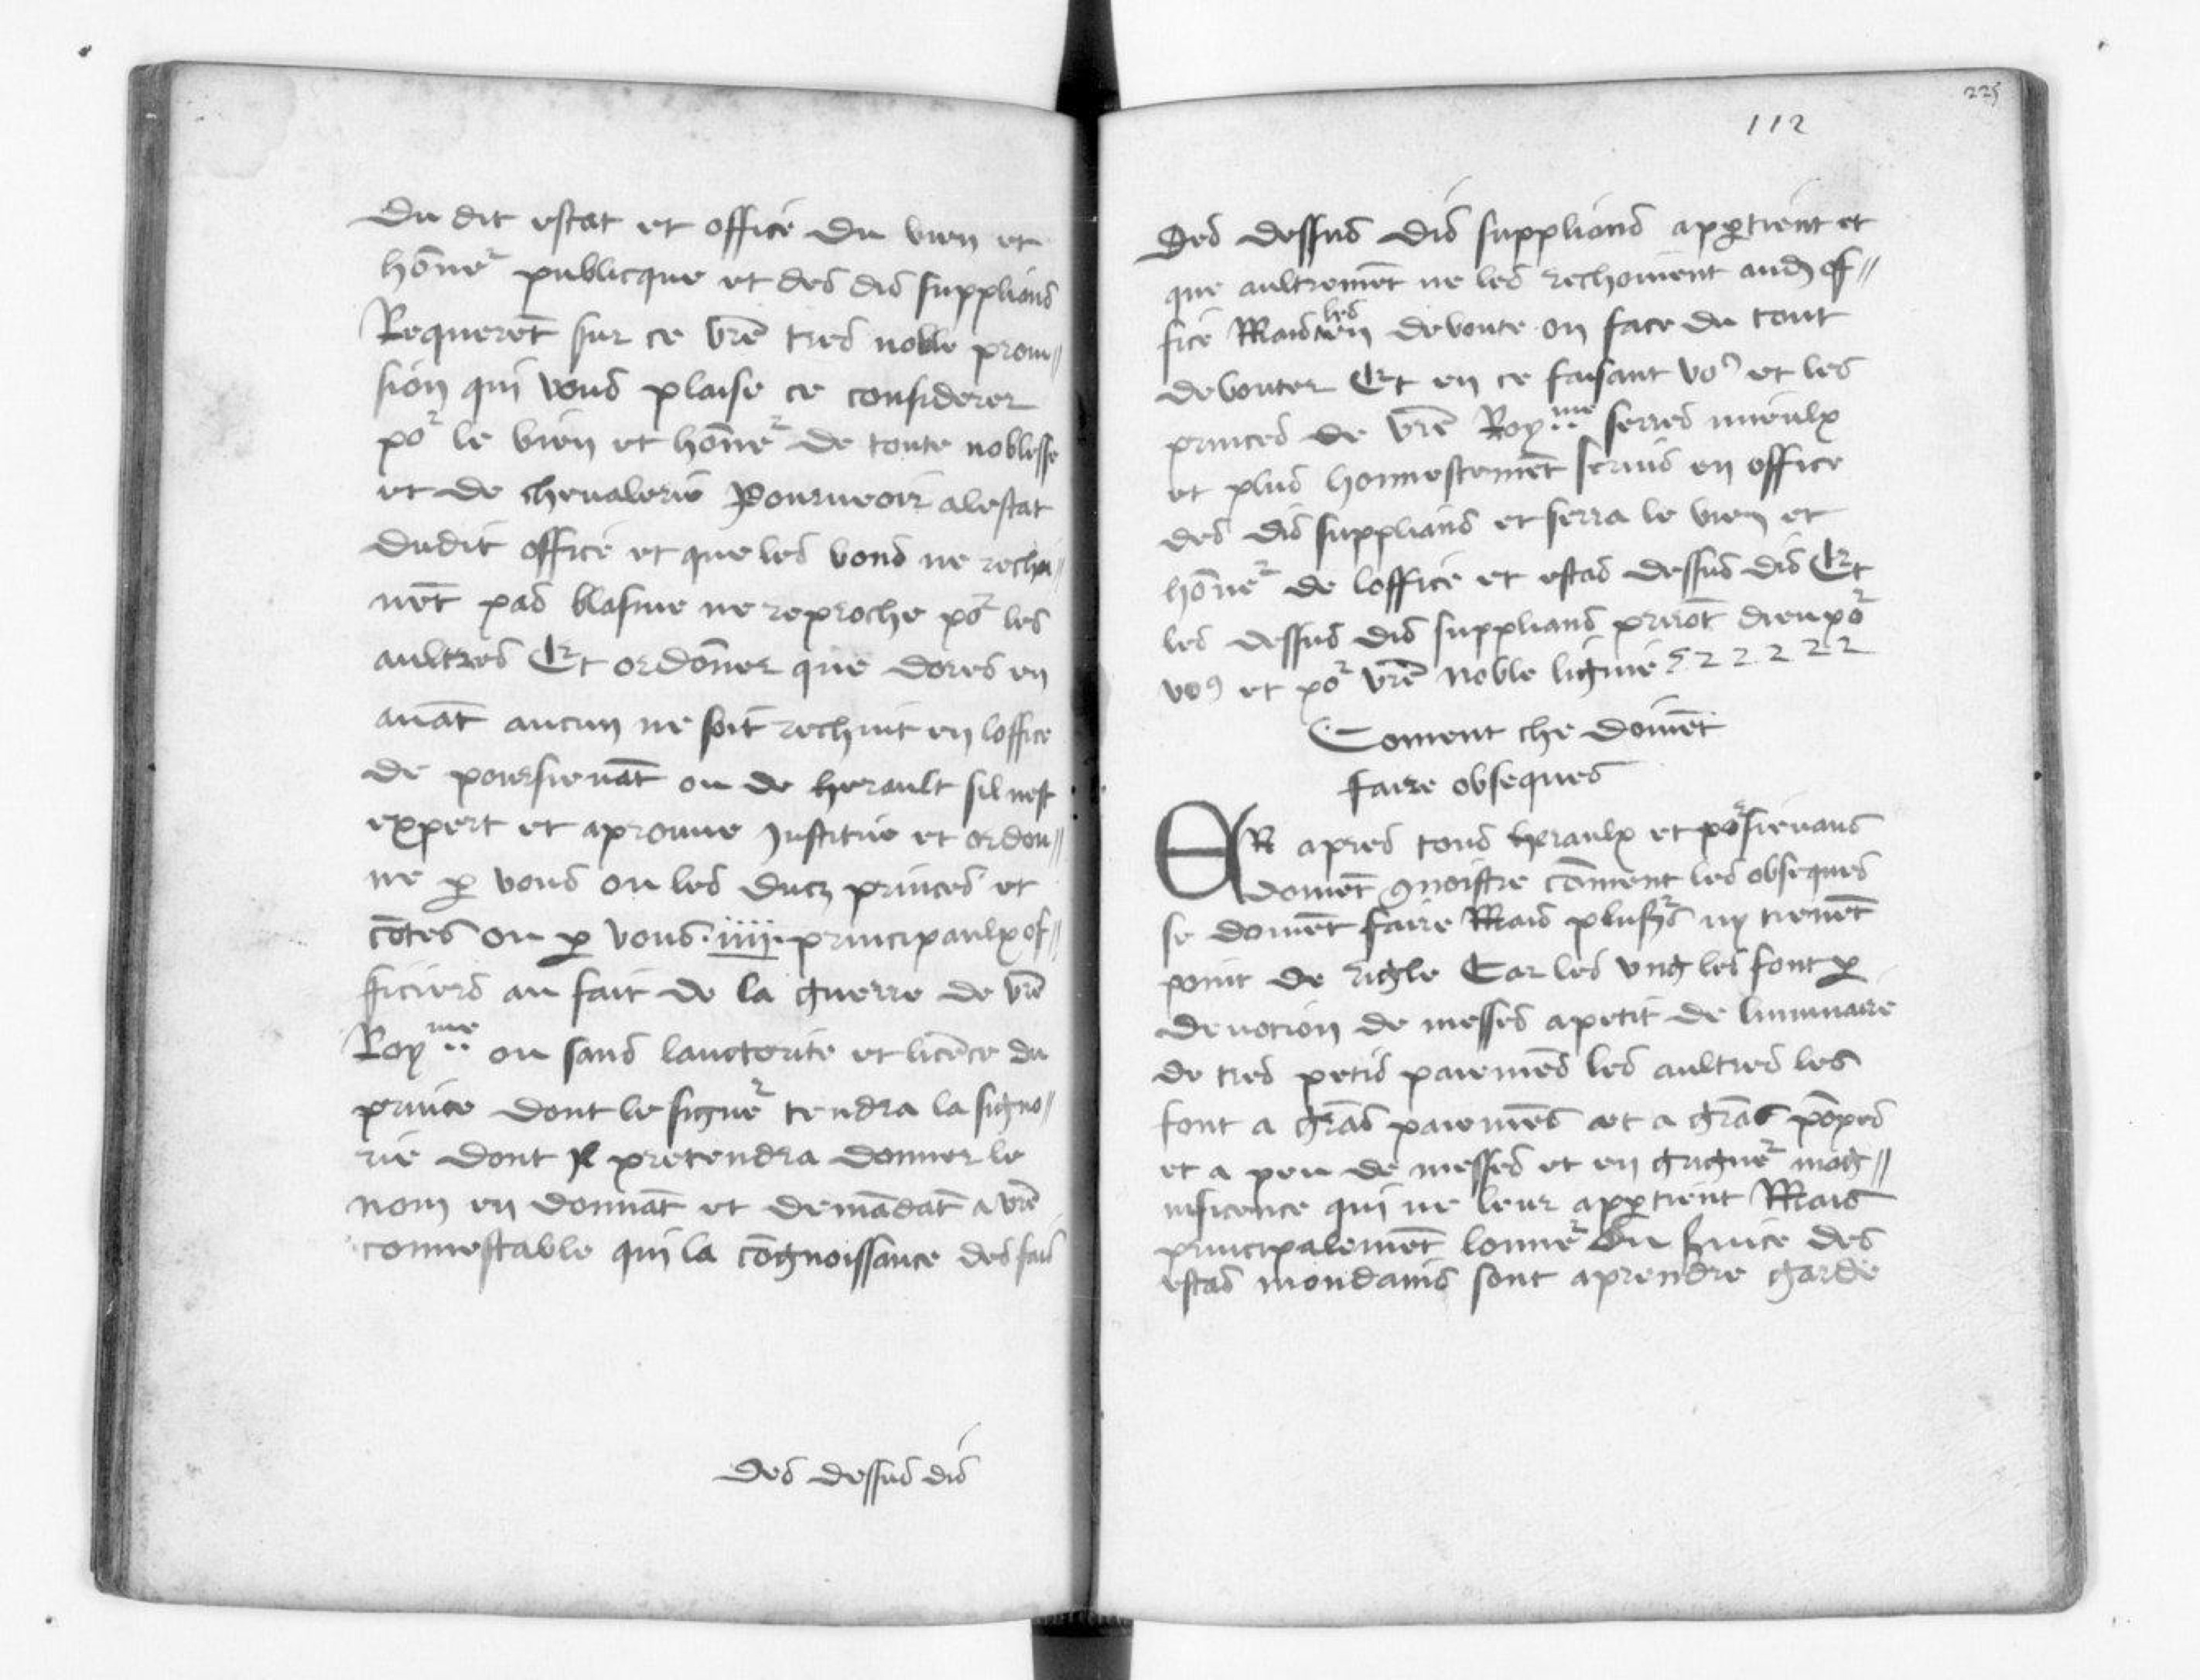 Du dit estat et office du bien et
hōneᵣ publicque et des dis supplians
Requerēt sur ce vr̄e tres noble proui//
sion qui vous plaise ce considerer
poᵣ le bien et hōneᵣ de toute noblesse
et de cheualerie Pourueoir alestat
dudit office et que les bons ne rechoi//
uēt pas blasme ne reproche poᵣ les
aultres Et ordōner que dores en
auāt aucun ne soit rechuit en loffice
de poursieuāt ou de herault sil nest
expert et aprouue Justitue et ordon//
ne ꝑ vous ou les ducz princes et
cōtes ou ꝑ vous .iiij. principaulx of//
ficiers au fait de la guerre de vr̄e
Royᵐᵉ ou sans lauctorite et licēce du
prince dont le signeᵣ tendra la signo//
rie dont Jl pretendra donner le
nom en donnāt et demādāt a vr̄e
connestable qui la cōgnoissance des fais
des dessus dis
225
112
Des dessus dis supplians apꝑtient et
que aultremēt ne les rechoiuent aud of//
fice Mais les en deboute on face du tout
debouter Et en ce faisant voꝰ et les
princes de vr̄e Royᵐᵉ serres mieulx
et plus honnestemēt seruis en office
des dis supplians et serra le bien et
hōneᵣ de loffice et estas dessus dis Et
les dessus dis supplians prirōt dieu poᵣ
voꝰ et poᵣ vr̄e noble lignie
Coment che doiuēt
faire obseques
OR apres tous heraulx et poᵣsieuans
doiuēt ꝯnoistre cōment les obseques
se doiuēt faire Mais plusᵣs ny tienēt
point de rigle Car les vng les font ꝑ
deuotion de messes a petit de luminaire
de tres petis paiemēs les aultres les
font a grās paiemēs et a grās pōpes
et a peu de messes et en grigneᵣ mag//
nificence qui ne leur apꝑtient Mais
principalemēt lonneᵣ du seruice des
estas mondains sont aprendre garde